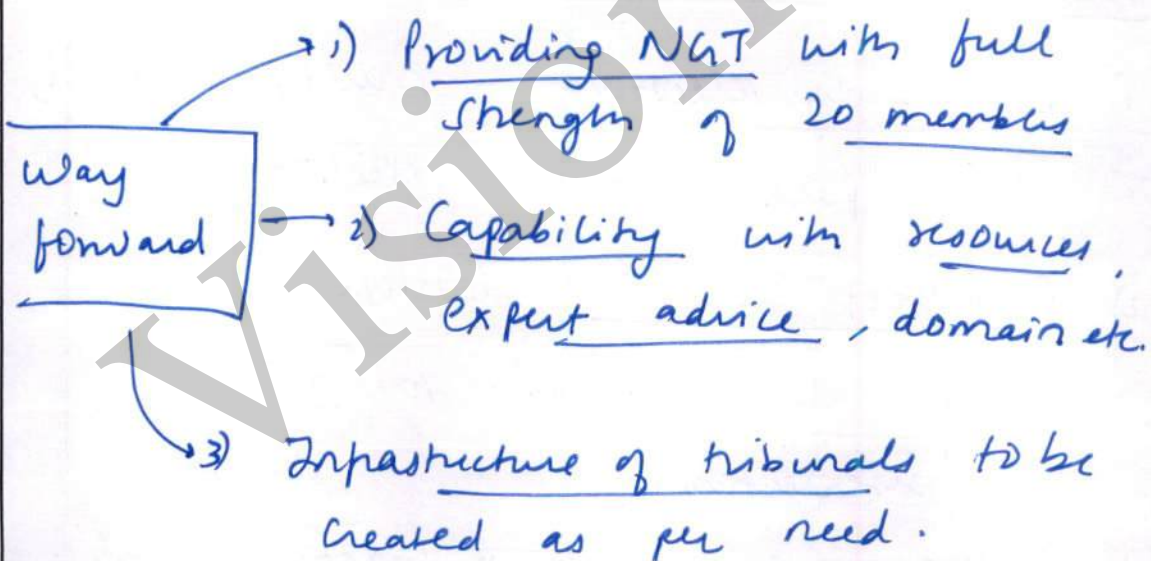 1) Providing NGT with full
strength of 20 members
Way
forward
2) Capability with resources,
expert advice, domain etc.
3) Infrastructure of tribunals to be
created as per need.
Vision